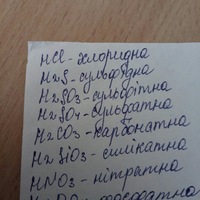 HCl - хлоридна
H2S - сульфідна
H2SO3 - сульфітна
H2SO4 - сульфатна
H2CO3 - карбонатна
H2SiO3 - силікатна
HNO3 - нітратна